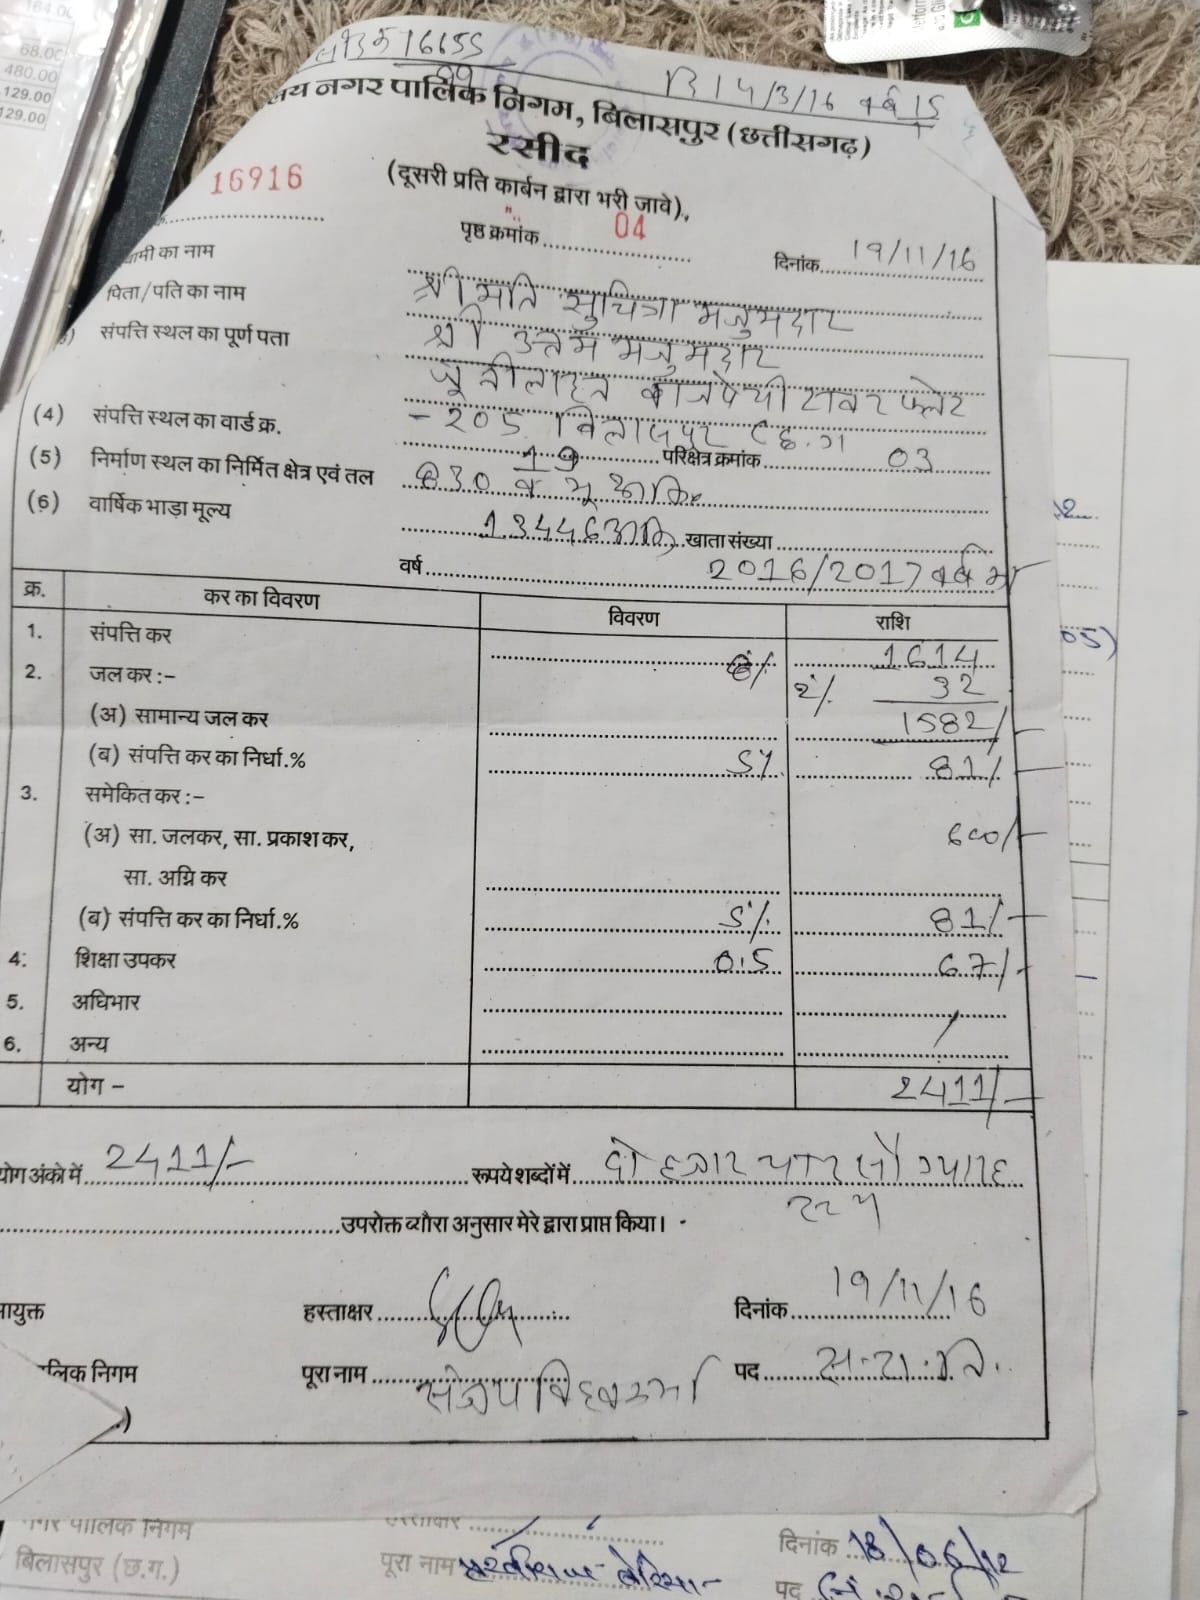 164.00
68.00
480.00
129.00
129.00
16655
दि 14/3/16 वर्ष 15
नगर पालिक निगम, बिलासपुर (छत्तीसगढ़)
रसीद
(दूसरी प्रति कार्बन द्वारा भरी जावे)
16916
पृष्ठ क्रमांक 04
दिनांक 19/11/16
का नाम श्रीमति सुचित्रा मजुमदार
पिता/पति का नाम श्री उत्तम मजुमदार
संपत्ति स्थल का पूर्ण पता जूनीलाइन बाजपेयी टावर फ्लेट
-205 बिलासपुर छ.ग
(4) संपत्ति स्थल का वार्ड क्र. 19 परिक्षेत्र क्रमांक 03
(5) निर्माण स्थल का निर्मित क्षेत्र एवं तल 830 व भू
(6) वार्षिक भाड़ा मूल्य 13446 खाता संख्या
वर्ष 2016/2017 वर्ष
क्र. कर का विवरण विवरण राशि
1. संपत्ति कर 1614
2. जल कर :- 2% 32
(अ) सामान्य जल कर 1582/-
(ब) संपत्ति कर का निर्धा.% 5% 81/-
3. समेकित कर :-
(अ) सा. जलकर, सा. प्रकाश कर, 600/-
सा. अग्नि कर
(ब) संपत्ति कर का निर्धा.% 5% 81/-
4. शिक्षा उपकर 0.5 67/-
5. अधिभार
6. अन्य
योग - 2411/-
योग अंको में 2411/- रूपये शब्दों में दो हजार चार सौ ग्यारह
उपरोक्त ब्यौरा अनुसार मेरे द्वारा प्राप्त किया।
आयुक्त हस्ताक्षर दिनांक 19/11/16
पालिक निगम पूरा नाम संजय विश्वकर्मा पद स.रा.नि.
नगर पालिक निगम हस्ताक्षर
बिलासपुर (छ.ग.) पूरा नाम
दिनांक 18/06/12
पद
05)